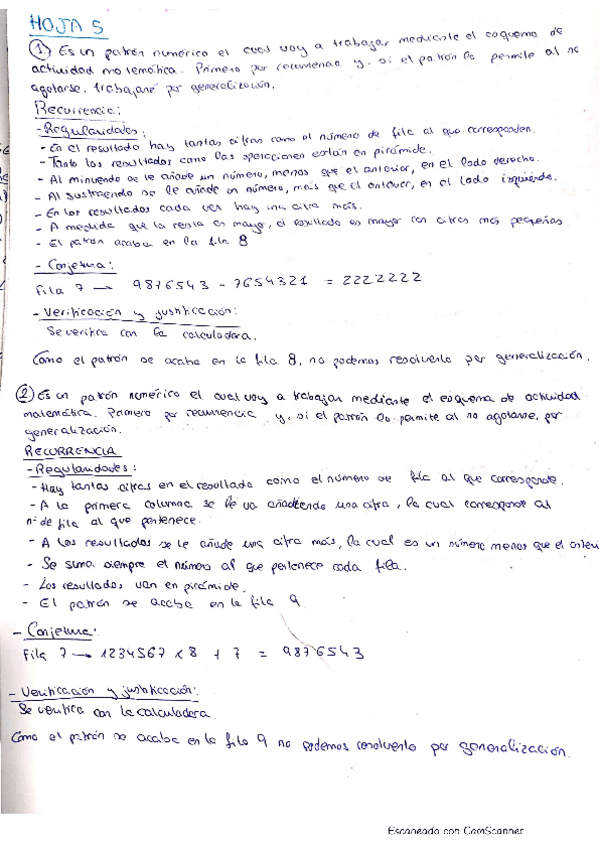 HOJA 5
1. Es un patrón numérico el cual voy a trabajar mediante el esquema de
actividad matemática. Primero por recurrencia y, si el patrón lo permite al no
agotarse, trabajaré por generalización.
Recurrencia:
- Regularidades:
- En el resultado hay tantas cifras como el número de fila al que corresponden.
- Tanto los resultados como las operaciones están en pirámide.
- Al minuendo se le añade un número, menos que el anterior, en el lado derecho.
- Al sustraendo se le añade un número, más que el anterior, en el lado izquierdo.
- En los resultados cada vez hay una cifra más.
- A medida que la resta es mayor, el resultado es mayor con cifras más pequeñas
- El patrón acaba en la fila 8
- Conjetura:
Fila 7 → 9876543 - 7654321 = 2222222
- Verificación y justificación:
Se verifica con la calculadora.
Como el patrón se acaba en la fila 8, no podemos resolverlo por generalización.
2. Es un patrón numérico el cual voy a trabajar mediante el esquema de actividad
matemática. Primero por recurrencia y, si el patrón lo permite al no agotarse, por
generalización.
RECURRENCIA
- Regularidades:
- Hay tantas cifras en el resultado como el número de fila al que corresponde.
- A la primera columna se le va añadiendo una cifra, la cual corresponde al
nº de fila al que pertenece.
- A los resultados se le añade una cifra más, la cual es un número menos que el anteri
- Se suma siempre el número al que pertenece cada fila.
- Los resultados van en pirámide.
- El patrón se acaba en la fila 9
- Conjetura:
Fila 7 → 1234567 x 8 + 7 = 9876543
- Verificación y justificación:
Se verifica con la calculadora
Como el patrón se acaba en la fila 9 no podemos resolverlo por generalización.
Escaneado con CamScanner